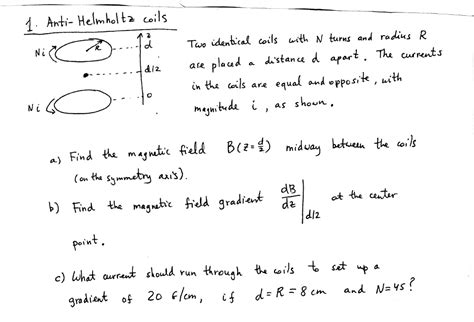 1. Anti-Helmholtz coils
Ni
R
z
d
d/2
Ni
0
Two identical coils with N turns and radius R
are placed a distance d apart. The currents
in the coils are equal and opposite, with
magnitude i, as shown.
a) Find the magnetic field B(z=d/2) midway between the coils
(on the symmetry axis).
b) Find the magnetic field gradient dB/dz|d/2 at the center
point.
c) What current should run through the coils to set up a
gradient of 20 G/cm, if d=R=8 cm and N=45?